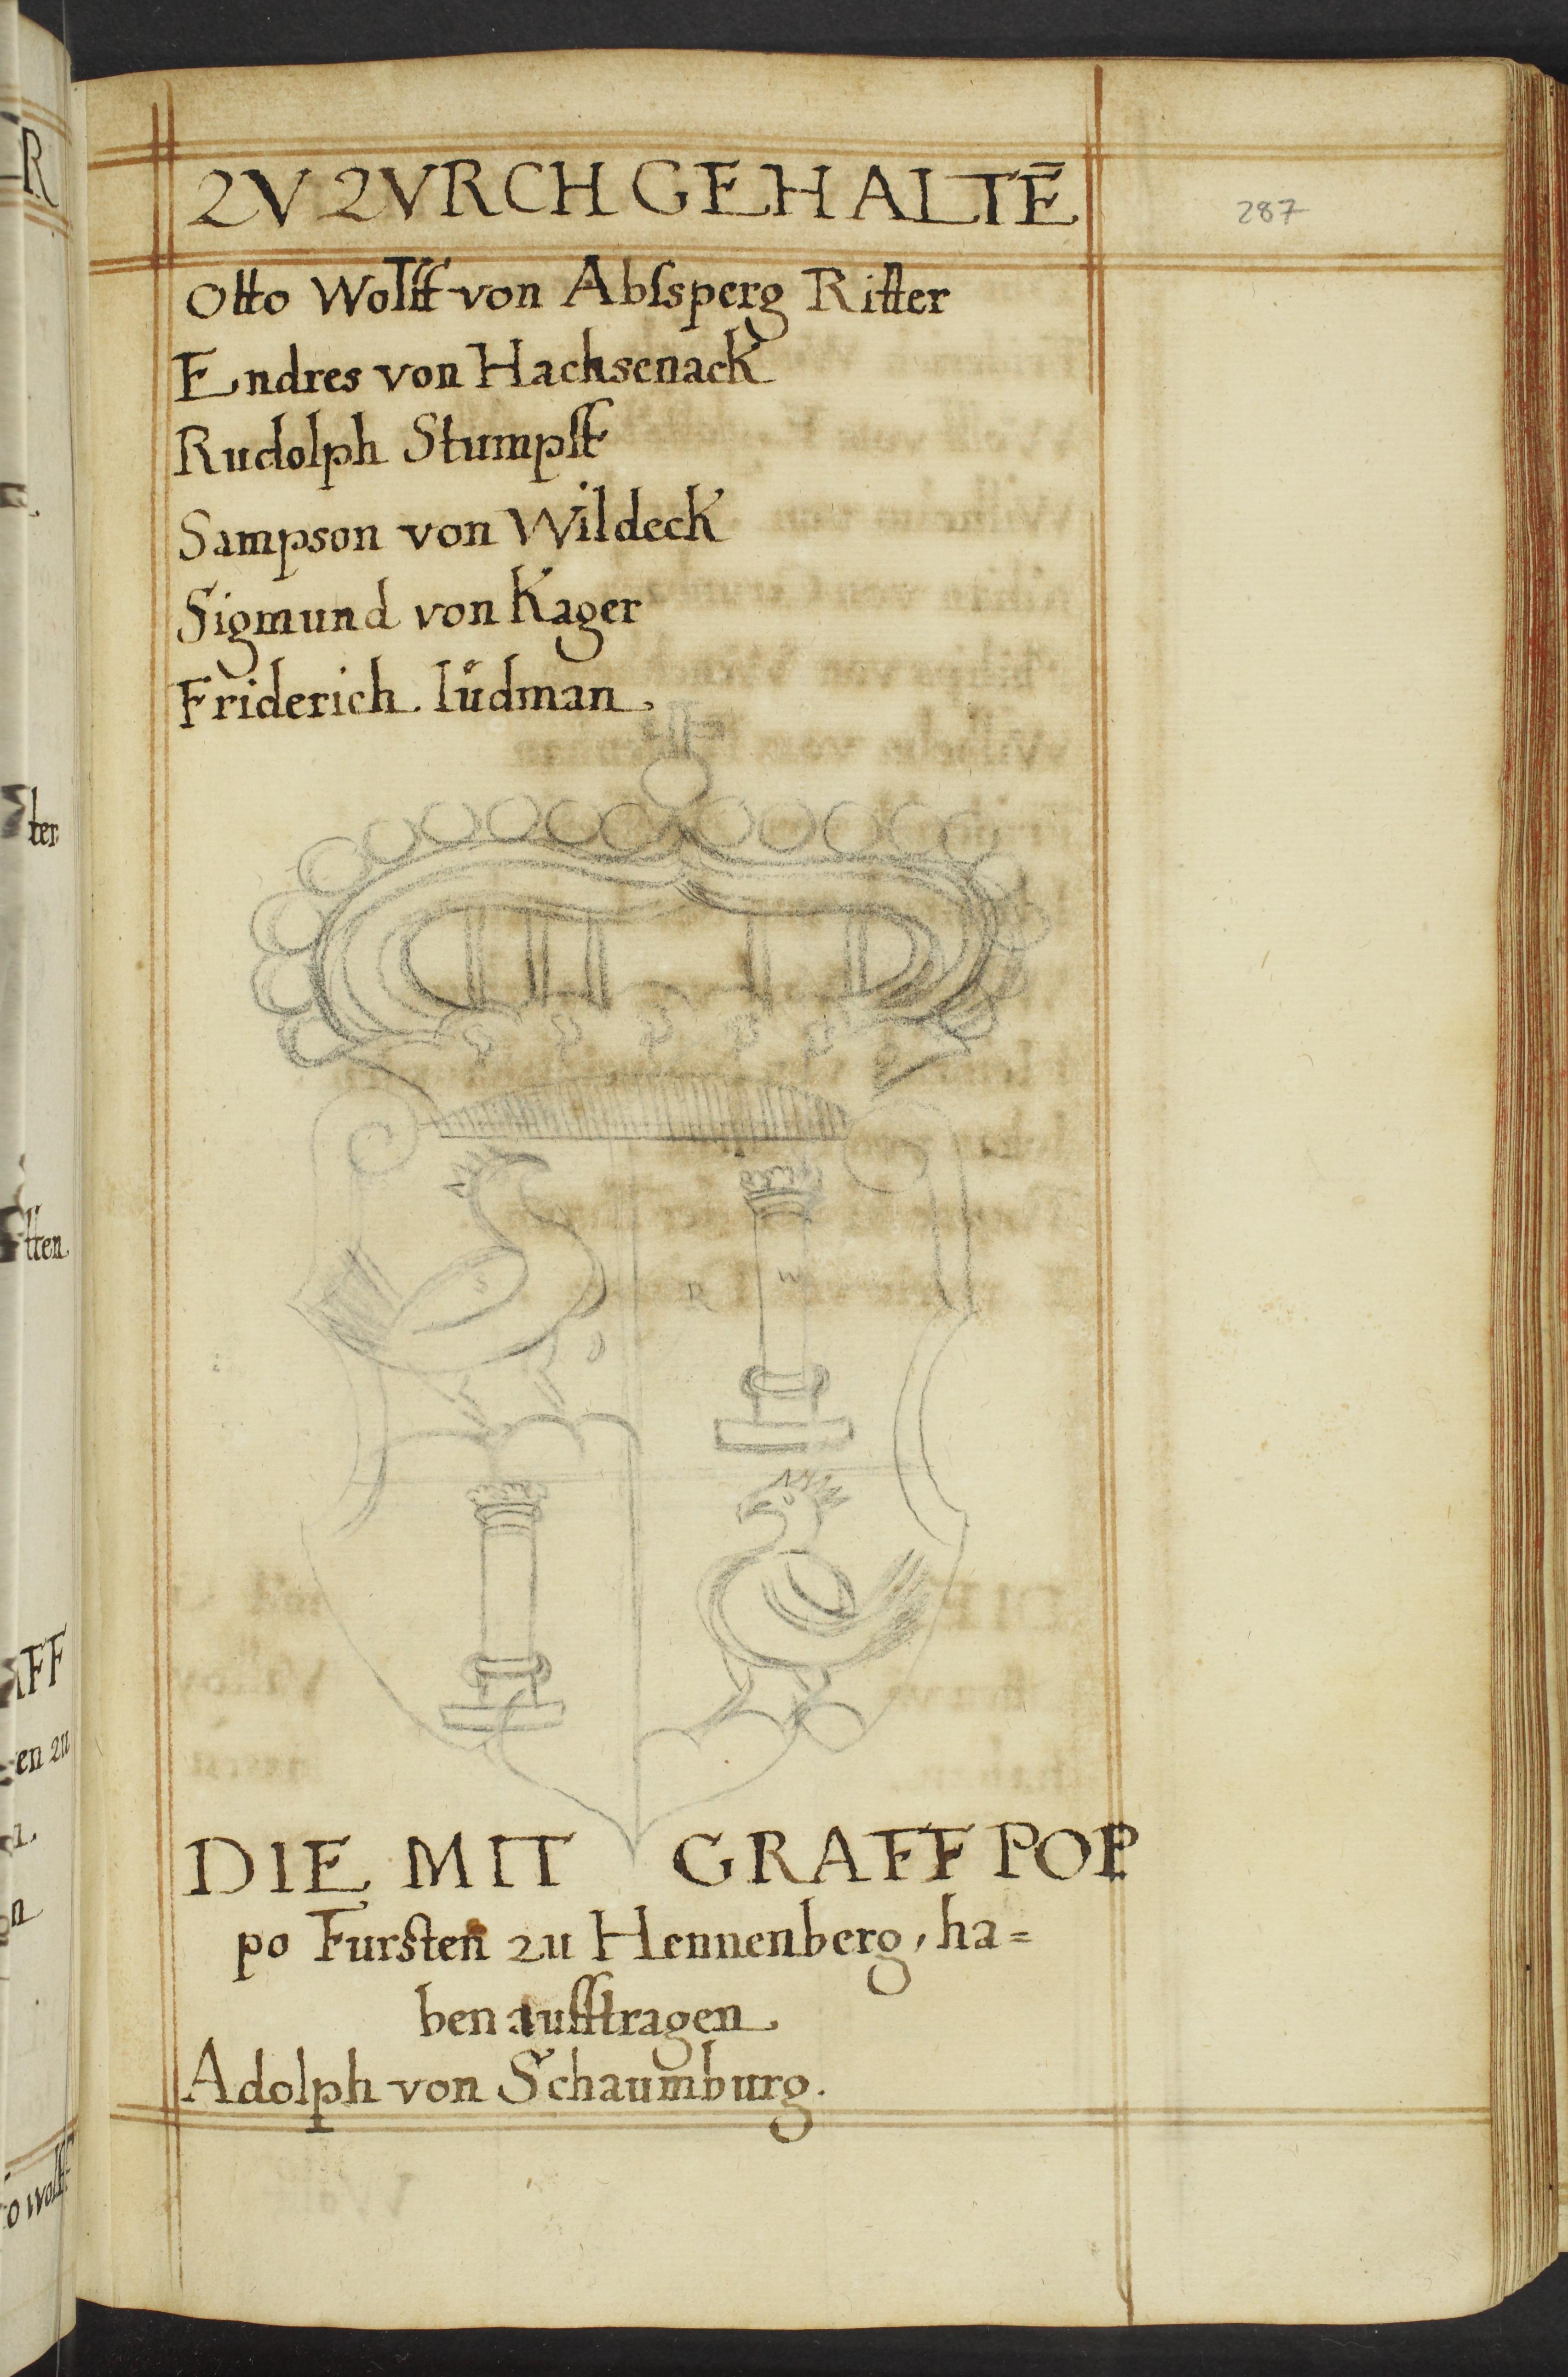 ZV ZVRCH GEHALTĒ
287
Otto Wolff von Absperg Ritter
Endres von Hachsenack
Rudolph Stumpff
Sampson von Wildeck
Sigmund von Kager
Friderich lüdman
S
R
W
DIE MIT GRAFF POP
po Fursten zu Hennenberg, ha=
ben aufftragen
Adolph von Schaumburg.